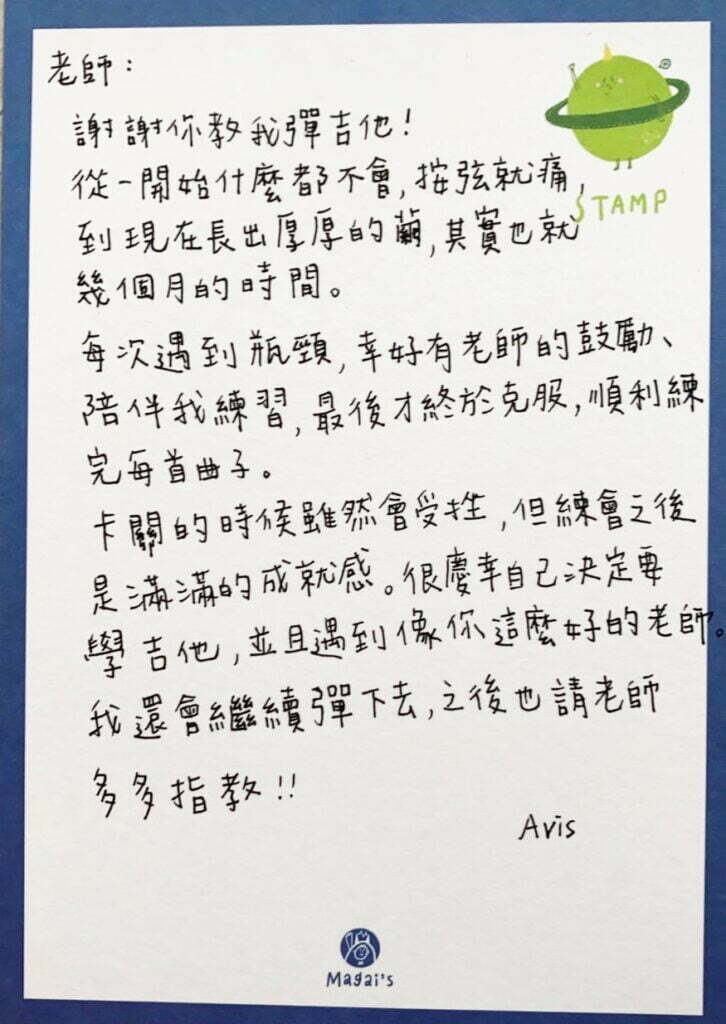 老師：
STAMP
謝謝你教我彈吉他！
從一開始什麼都不會，按弦就痛，
到現在長出厚厚的繭，其實也就
幾個月的時間。
每次遇到瓶頸，幸好有老師的鼓勵、
陪伴我練習，最後才終於克服，順利練
完每首曲子。
卡關的時候雖然會受挫，但練會之後
是滿滿的成就感。很慶幸自己決定要
學吉他，並且遇到像你這麼好的老師。
我還會繼續彈下去，之後也請老師
多多指教！！
Avis
Magai's